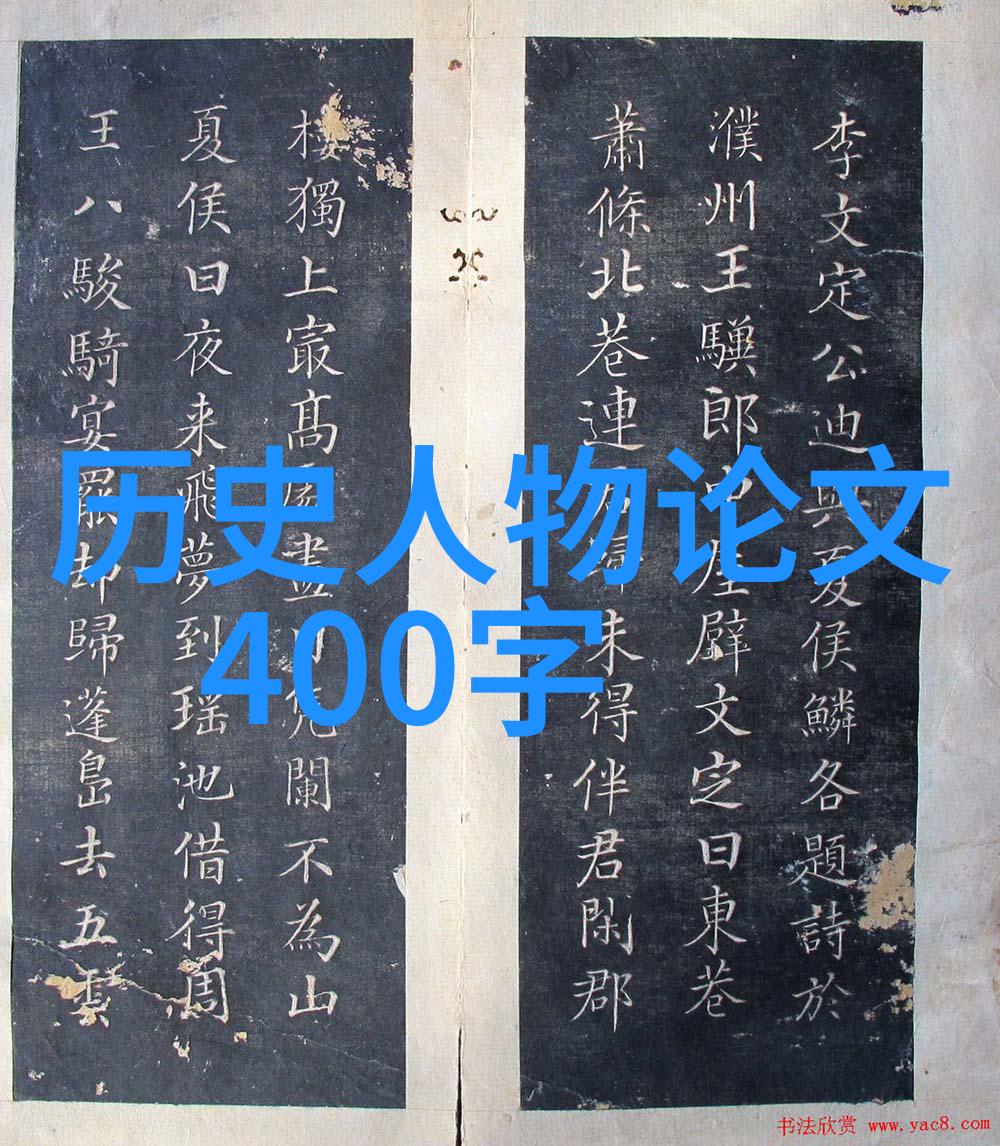 李文定公迪與夏侯鱗各題詩於
濮州王郎中屋壁文定曰東巷
蕭條北巷連朱得伴君閑郡
樓獨上㝡髙層盡日凭闌不為山
夏侯曰夜来飛夢到瑶池借得周
王八駿騎宴罷却歸蓬島去五雲
历史人物论文
400字
书法欣赏 www.yac8.com